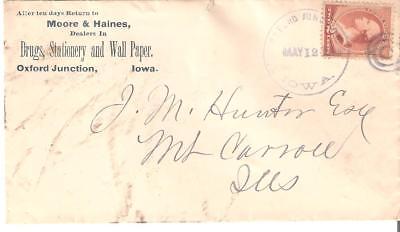 After ten days Return to
Moore & Haines,
Dealers In
Drugs, Stationery and Wall Paper.
Oxford Junction, Iowa.
MAY 12
IOWA.
J. M. Hunter Esq
Mt Carroll
Ills